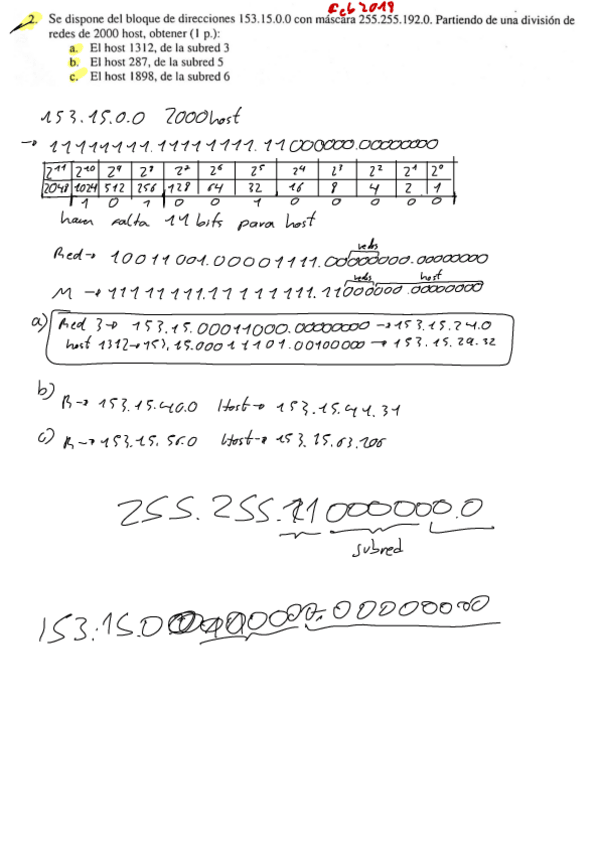 Feb 2019
2. Se dispone del bloque de direcciones 153.15.0.0 con máscara 255.255.192.0. Partiendo de una división de
redes de 2000 host, obtener (1 p.):
a. El host 1312, de la subred 3
b. El host 287, de la subred 5
c. El host 1898, de la subred 6
153.15.0.0 2000host
→ 11111111.11111111.11000000.00000000
2¹¹ 2¹⁰ 2⁹ 2⁸ 2⁷ 2⁶ 2⁵ 2⁴ 2³ 2² 2¹ 2⁰
2048 1024 512 256 128 64 32 16 8 4 2 1
1 0 1 0 0 1 0 0 0 0 0
hacen falta 11 bits para host
redes
Red → 10011001.00001111.00000000.00000000
redes host
M → 11111111.11111111.11000000.00000000
a) Red 3 → 153.15.00011000.00000000 → 153.15.24.0
host 1312 → 153.15.00011101.00100000 → 153.15.29.32
b) R → 153.15.40.0 Host → 153.15.41.31
c) R → 153.15.56.0 Host → 153.15.63.106
255.255.11000000.0
subred
153.15.0
.00000000